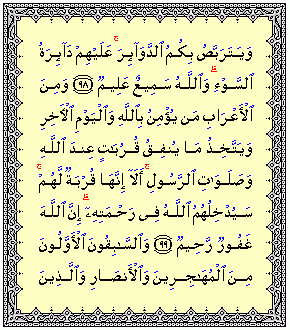 وَيَتَرَبَّصُ بِكُمُ ٱلدَّوَآئِرَ ۚ عَلَيْهِمْ دَآئِرَةُ
ٱلسَّوْءِ ۗ وَٱللَّهُ سَمِيعٌ عَلِيمٌ ﴿٩٨﴾ وَمِنَ
ٱلْأَعْرَابِ مَن يُؤْمِنُ بِٱللَّهِ وَٱلْيَوْمِ ٱلْآخِرِ
وَيَتَّخِذُ مَا يُنفِقُ قُرُبَـٰتٍ عِندَ ٱللَّهِ
وَصَلَوَٰتِ ٱلرَّسُولِ ۚ أَلَآ إِنَّهَا قُرْبَةٌ لَّهُمْ ۚ
سَيُدْخِلُهُمُ ٱللَّهُ فِى رَحْمَتِهِۦٓ ۗ إِنَّ ٱللَّهَ
غَفُورٌ رَّحِيمٌ ﴿٩٩﴾ وَٱلسَّـٰبِقُونَ ٱلْأَوَّلُونَ
مِنَ ٱلْمُهَـٰجِرِينَ وَٱلْأَنصَارِ وَٱلَّذِينَ